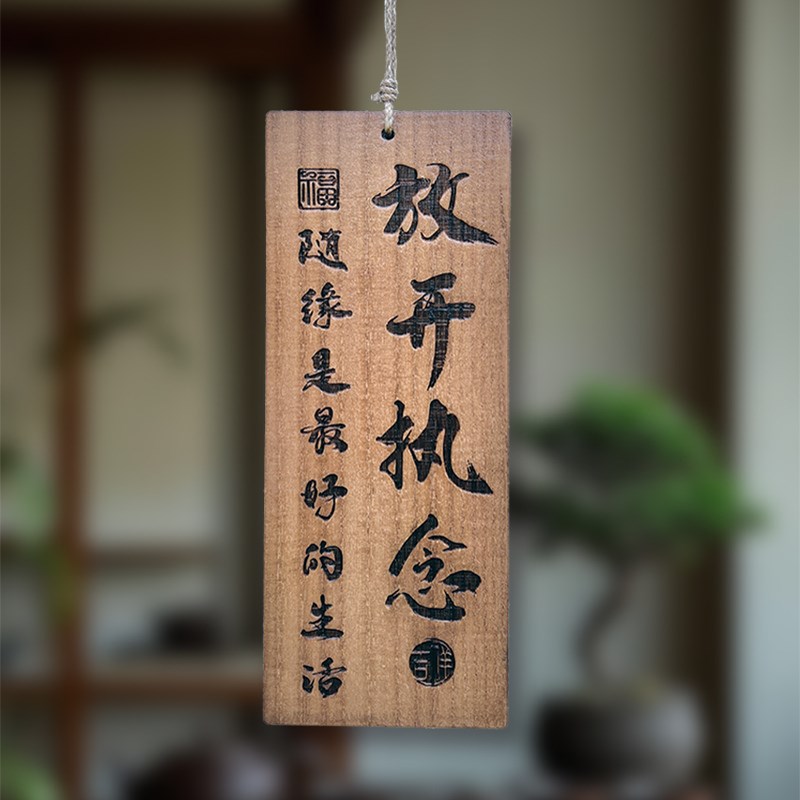 放开执念
吉祥
福
随缘是最好的生活